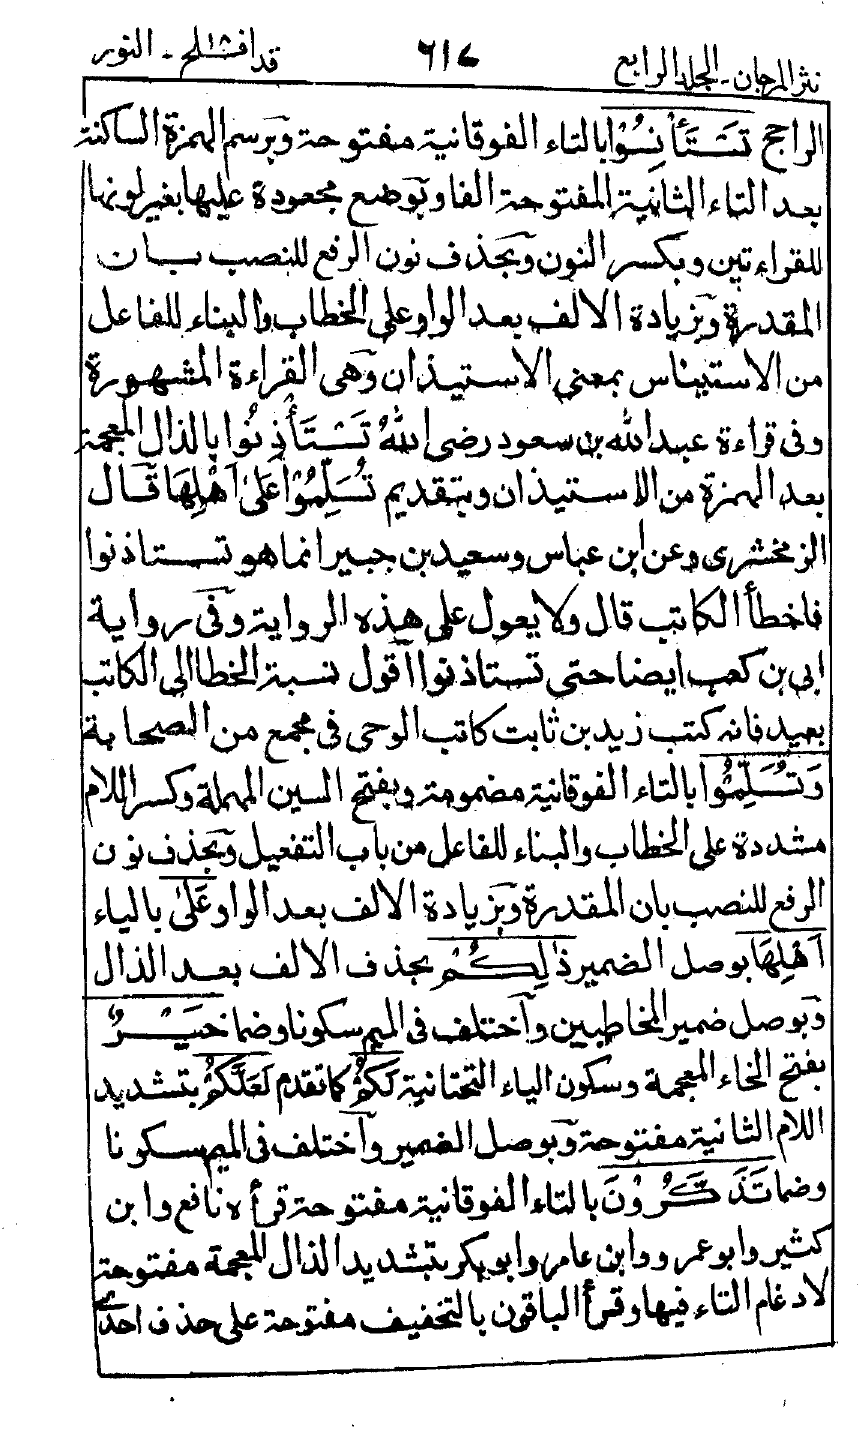 نثر المرجان - المجلد الرابع ٦١٧ قد افلح ١٨ - النور
الراجح تَسْتَأْنِسُوْا بالتاء الفوقانية مفتوحة وَبرسم الهمزة الساكنة
بعد التاء الثانية المفتوحة الفا وبوضع مجعودة عليها بغير لونها
للقراءتين وبكسر النون وَبحذف نون الرفع للنصب بان
المقدرة وَبزيادة الالف بعد الواو على الخطاب والبناء للفاعل
من الاستيناس بمعنى الاستيذان وَهى القراءة المشهورة
وفى قراءة عبد الله بن سعود رضى اللهُ تَسْتَأْذِنُوا بالذال المعجمة
بعد الهمزة من الاستيذان وبتقديم تُسَلِّمُوْا عَلٰى اَهْلِهَا قَال
الزمخشرى وعن ابن عباس وسعيد بن جبير انما هو تستاذنوا
فاخطأ الكاتب قال ولا يعول على هذه الرواية وَفى رواية
ابى بن كعب ايضا حتى تستاذنوا اقول نسبة الخطا الى الكاتب
بعيد فانه كتب زيد بن ثابت كاتب الوحى فى مجمع من الصحابة
وَتُسَلِّمُوْا بالتاء الفوقانية مضمومة وبفتح السين المهملة وكسر اللام
مشددة على الخطاب والبناء للفاعل من باب التفعيل وَبحذف نون
الرفع للنصب بان المقدرة وَبزيادة الالف بعد الواو عَلٰى بالياء
اَهْلِهَا بوصل الضمير ذٰلِكُمْ بحذف الالف بعد الذال
وَبوصل ضمير المخاطبين وَاختلف فى الميم سكونا وضما خَيْرٌ
بفتح الخاء المعجمة وسكون الياء التحتانية لَكُمْ كما تقدم لَعَلَّكُمْ بتشديد
اللام الثانية مفتوحة وَبوصل الضمير وَاختلف فى الميم سكونا
وضما تَذَكَّرُوْنَ بالتاء الفوقانية مفتوحة قرأه نافع وابن
كثير وابو عمرو وابن عامر وابو بكر بتشديد الذال المعجمة مفتوحة
لادغام التاء فيها وقرأ الباقون بالتخفيف مفتوحة على حذف احدى